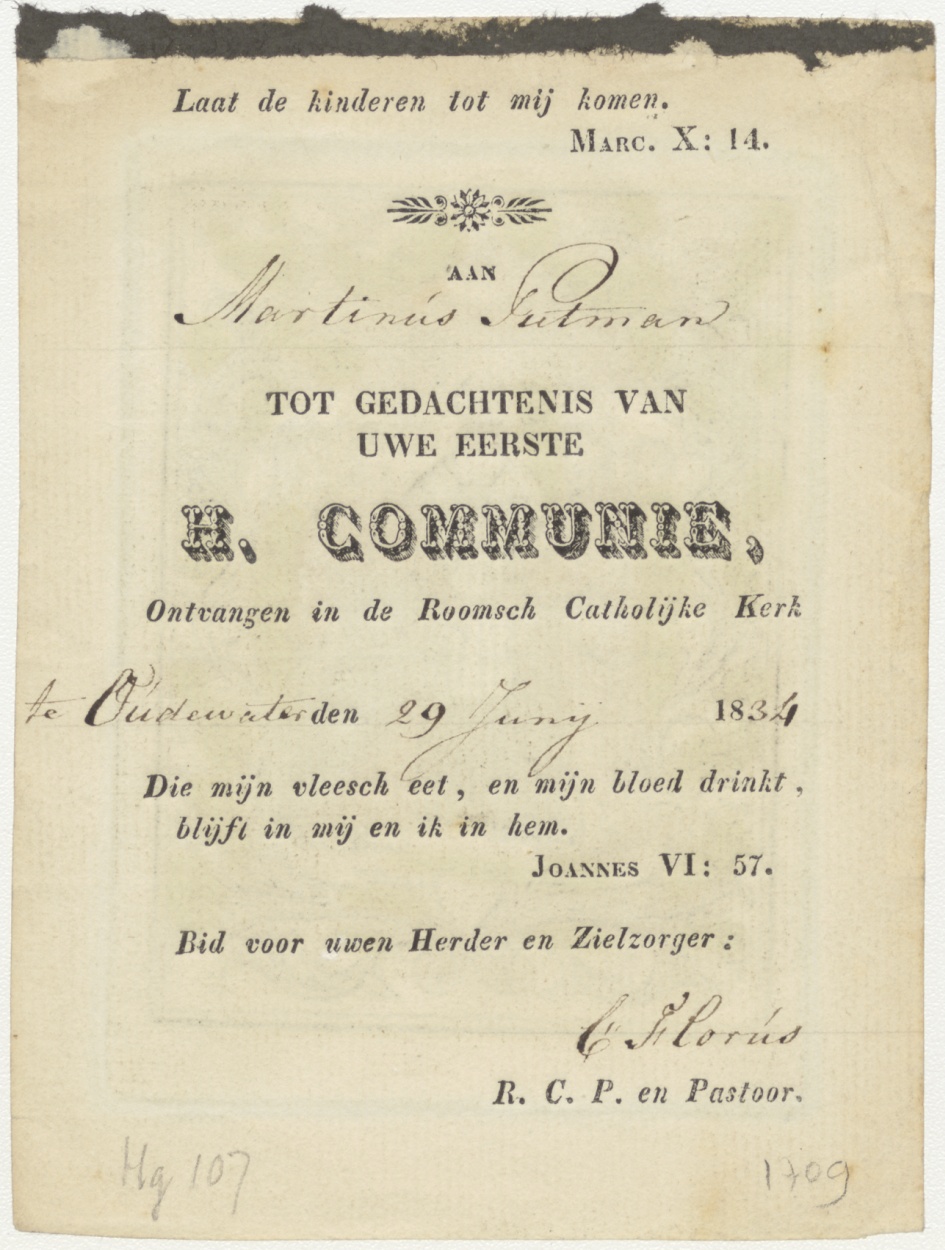 Laat de kinderen tot mij komen.
MARC. X: 14.
AAN
Martinus Putman
TOT GEDACHTENIS VAN
UWE EERSTE
H. COMMUNIE,
Ontvangen in de Roomsch Catholijke Kerk
te Oudewater den 29 Junij 1834
Die mijn vleesch eet, en mijn bloed drinkt,
blijft in mij en ik in hem.
JOANNES VI: 57.
Bid voor uwen Herder en Zielzorger:
C Florus
R. C. P. en Pastoor.
Hg 107
1709